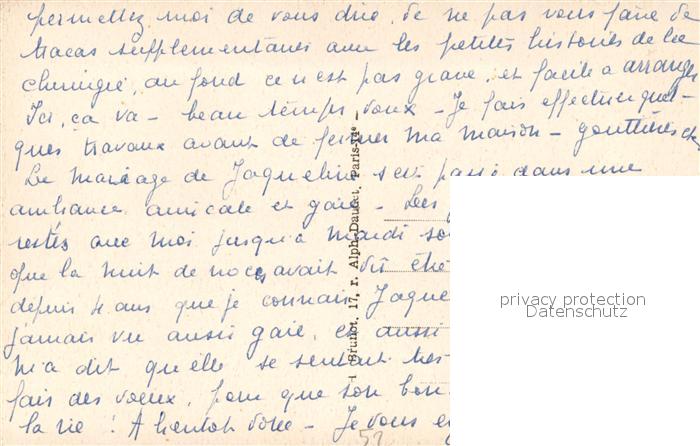 permettez moi de vous dire, de ne pas vous faire de
tracas supplementaires avec les petites histoires de la
chirurgie, au fond ce n'est pas grave, et facile a arranger
Ici, ça va - beau temps doux - Je fais effectuer quel-
ques travaux avant de fermer ma maison - gouttières etc
Le mariage de Jaqueline s'est passé dans une
ambiance amicale et gaie - Les
restés avec moi jusqu'à mardi
que la nuit de noces avait dû être
depuis 4 ans que je connais Jaque
jamais vu aussi gaie, et aussi
m'a dit qu'elle se sentait très
fais des voeux, pour que son bon
la vie ! A bientôt - Je vous
Brunot, 17, r. Alph-Daudet, Paris-14e -
52
privacy protection
Datenschutz